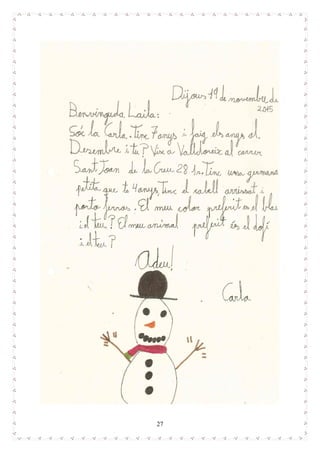 Dijous 19 de novembre de
2015
Benvinguda Laila:
Sóc la Carla. Tinc 7 anys i faig els anys al
Desembre i tú? Visc a Valldoreix al carrer
Sant Joan de la Creu 28 1r. Tinc una germana
petita que té 4 anys. Tinc el cabell arrissat i
porto ferros. El meu color preferit es el blau
i el teu? El meu animal preferit és el dofí
i el teu?
Adeu!
Carla
27